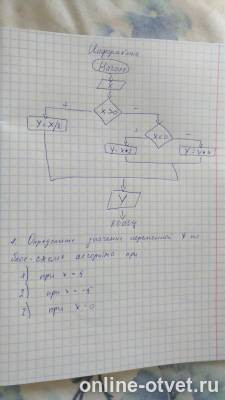 Информатика
Начало
X
+ x>0 -
Y = X/2
+ x<0 -
Y
конец
1. Определите значение переменной Y по
блок-схеме алгоритма при
1) при x = 5
2) при x = -5
при x = 0
online-otvet.ru